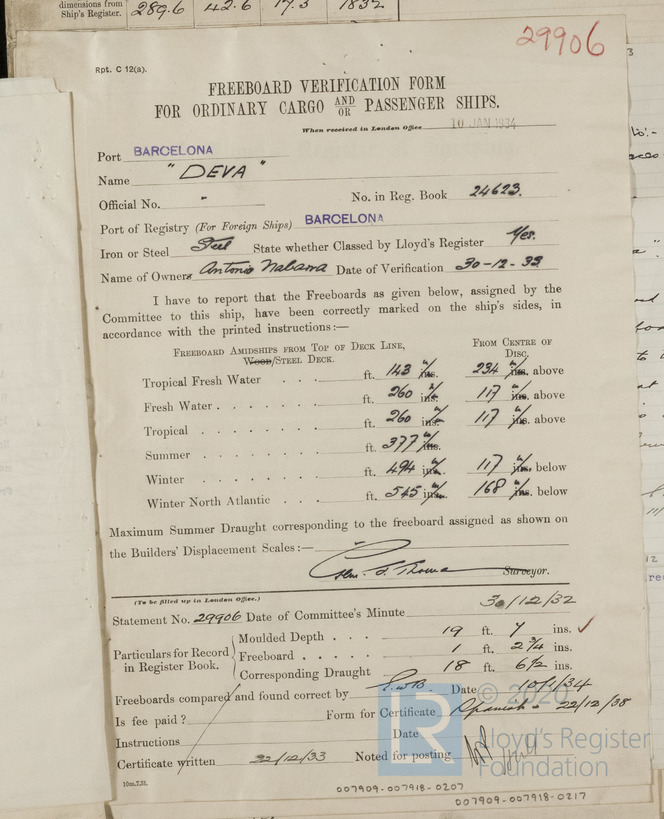 dimensions from
Ship's Register.
289.6 42.6 17.3 1832
29906
Rpt. C 12(a).
FREEBOARD VERIFICATION FORM
FOR ORDINARY CARGO AND/OR PASSENGER SHIPS.
When received in London Office 10 JAN 1934
Port BARCELONA
Name "DEVA"
Official No. No. in Reg. Book 24623.
Port of Registry (For Foreign Ships) BARCELONA
Iron or Steel Steel State whether Classed by Lloyd's Register Yes.
Name of Owners Antonio Date of Verification 30-12-33
I have to report that the Freeboards as given below, assigned by the
Committee to this ship, have been correctly marked on the ship's sides, in
accordance with the printed instructions:—
FREEBOARD AMIDSHIPS FROM TOP OF DECK LINE, FROM CENTRE OF
WOOD/STEEL DECK. DISC.
Tropical Fresh Water . . . ft. 143 m/m ins. 234 m/m ins. above
Fresh Water . . . . . . ft. 260 m/m ins. 117 m/m ins. above
Tropical . . . . . . . ft. 260 m/m ins. 117 m/m ins. above
Summer . . . . . . . ft. 377 m/m ins.
Winter . . . . . . . ft. 494 m/m ins. 117 m/m ins. below
Winter North Atlantic . . . ft. 545 m/m ins. 168 m/m ins. below
Maximum Summer Draught corresponding to the freeboard assigned as shown on
the Builders' Displacement Scales:—
Surveyor.
(To be filled up in London Office.)
Statement No. 29906 Date of Committee's Minute 30/12/32
Particulars for Record
in Register Book.
Moulded Depth . . . 19 ft. 7 ins. ✓
Freeboard . . . . . 1 ft. 2 3/4 ins.
Corresponding Draught 18 ft. 6 1/2 ins.
Freeboards compared and found correct by Date 10/1/34
Is fee paid? Form for Certificate Spanish - 22/12/38
Instructions Date
Certificate written 22/12/33 Noted for posting
10m,7,31.
© 2020
LR
Lloyd's Register
Foundation
007909-007918-0207
007909-007918-0217